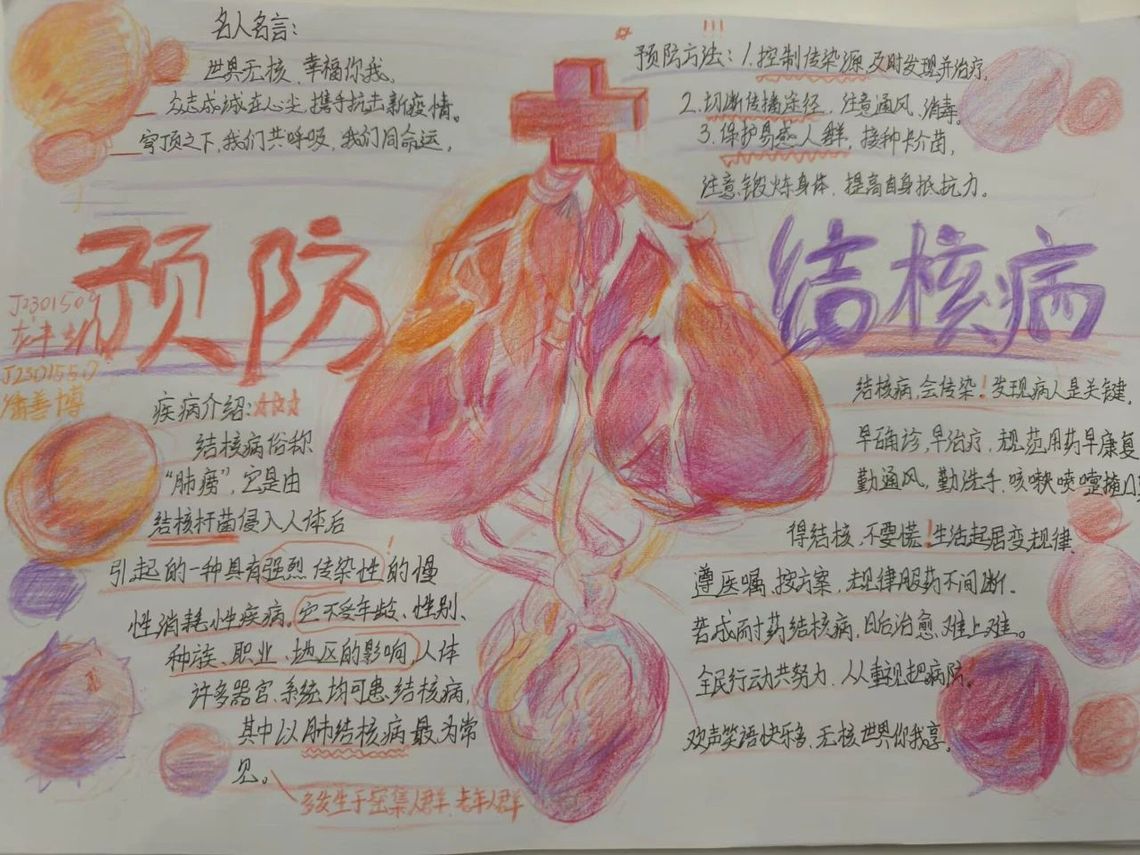 名人名言：
世界无核，幸福你我。
众志成城在心尖，携手抗击新疫情。
穹顶之下，我们共呼吸，我们同命运，
!!!
预防方法：1.控制传染源，及时发现并治疗，
2.切断传播途径，注意通风、消毒。
3.保护易感人群，接种卡介苗，
注意锻炼身体，提高自身抵抗力。
预防
结核病
J2301509
J2301550
善博
疾病介绍：
结核病俗称
“肺痨”，它是由
结核杆菌侵入人体后
引起的一种具有强烈传染性的慢
性消耗性疾病，它不受年龄、性别、
种族、职业、地区的影响，人体
许多器官、系统均可患结核病，
其中以肺结核病最为常
见。
多发生于密集人群、老年人群
结核病，会传染！发现病人是关键，
早确诊，早治疗，规范用药早康复
勤通风，勤洗手，咳嗽喷嚏掩口
得结核，不要慌！生活起居变规律
遵医嘱，按方案，规律服药不间断。
若成耐药结核病，日后治愈难上难。
全民行动共努力，人人重视把病防。
欢声笑语快乐多，无核世界你我享。